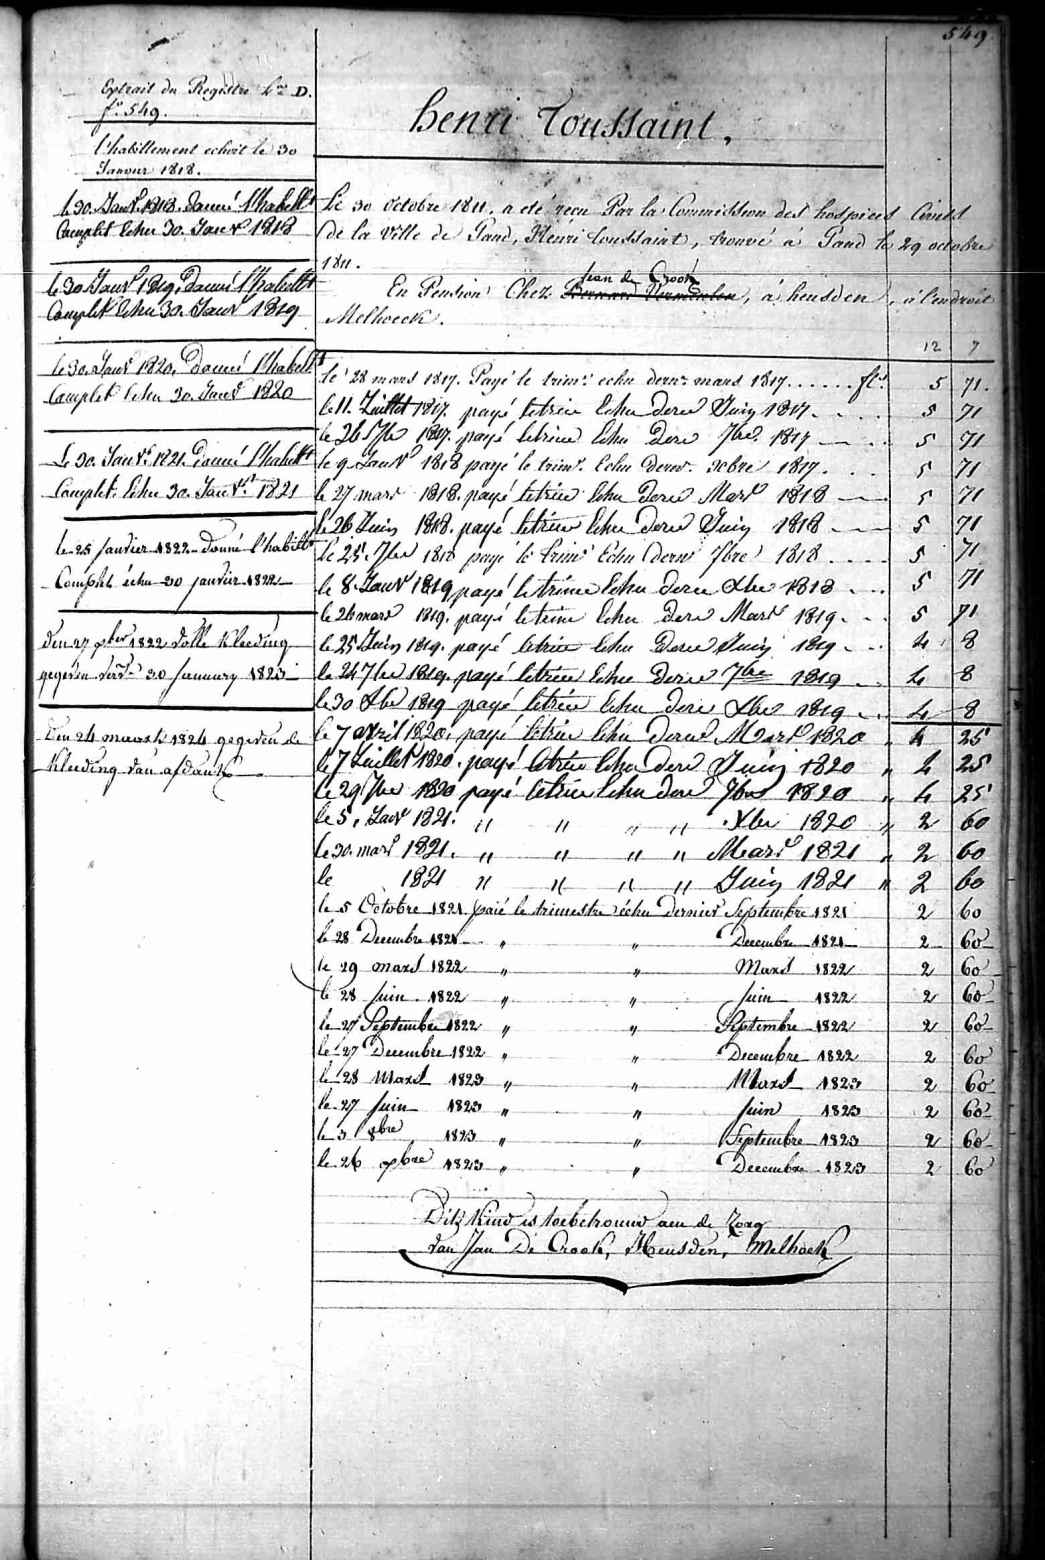 549
Extrait du Registre Lra D.
fo 549.
l'habillement echoit le 30
Janvier 1818.
le 30. Janvr. 1818. donné l'habillt
Complet Echu 30. Janvr 1818
le 30 Janvr 1819, Donné l'habillt
Complet Echu 30. Janvr 1819
le 30. Janvr 1820, Donné l'habillt
Complet Echu 30. Janvr 1820
Le 30. Janvr. 1821. Donné l'habillt
Complet Echu 30. Janvr. 1821
le 25 janvier 1822 Donné l'habillt
Complet échu 30 janvier 1822
den 27 9ber 1822 volle kleeding
gegeven 30 January 1823
Den 24 maart 1824 gegeven de
kleeding van afdank
henri Toussaint,
Le 30 octobre 1811, a eté recu Par la Commission des hospices Civils
de la Ville de Gand, Henri toussaint, trouvé à Gand le 29 octobre
1811.
Jean de Crook
En Pension Chez Bernard Vermeulen, à heusden, à l'endroit
Melhoeck.
12 7
le 28 mars 1817. Payé le trimr. echu dernr. mars 1817. . . . . . fl. 5 71.
le 11. Juillet 1817. payé letrim Echu dere Juin 1817. . . . 5 71
le 26 7bre 1817. payé letrim Echu dere 7bre. 1817 5 71
le 9 Janvr 1818 payé le trimr. Echu dernr. Xcbre 1817. . . . 5 71
le 27 mars 1818. payé letrim Echu dere Mars 1818 5 71
le 26 Juin 1818. payé letrim Echu dere Juin 1818 5 71
Le 25. 7bre 1818 payé le trimr Echu dernr 7bre 1818 . . . . 5 71
le 8. Janvr 1819 payé letrim Echu dere Xbre 1818 . . . 5 71
le 26 mars 1819. payé letrim Echu dere Mars 1819. . . 5 71
le 25 Juin 1819. payé letrim Echu dere Juin 1819 . . . 4 8
le 24 7bre 1819. payé letrim Echu dere 7bre 1819 . . 4 8
le 30 Xbre 1819 payé letrim Echu dere Xbre 1819 . . . 4 8
le 7 avril 1820. payé letrim Echu dere Mars 1820 " 4 25
le 7 Juillet 1820. payé letrim Echu dere Juin 1820 " 4 25
le 29. 7bre 1820 payé letrim Echu dere 7bre 1820 " 4 25
le 5, Janr 1821. " " " " Xbre 1820 " 2 60
le 30. mars 1821. " " " " Mars 1821 " 2 60
le 1821 " " " " Juin 1821 " 2 60
le 5 Octobre 1821 paié le trimestre échu dernier Septembre 1821 2 60
le 28 Decembre 1821 " " Decembre 1821 2 60
le 29 mars 1822 " " Mars 1822 2 60
le 28 juin 1822 " " juin 1822 2 60
le 27 Septembre 1822 " " Septembre 1822 2 60
le 27 Decembre 1822 " " Decembre 1822 2 60
le 28 Mars 1823 " " Mars 1823 2 60
le 27 juin 1823 " " juin 1823 2 60
le 3 8bre 1823 " " Septembre 1823 2 60
le 26 9bre 1823 " " Decembre 1823 2 60
Ditz kind is toebetrouwd aen de Zorg
van Jan De Crook, Heusden, Melhoek